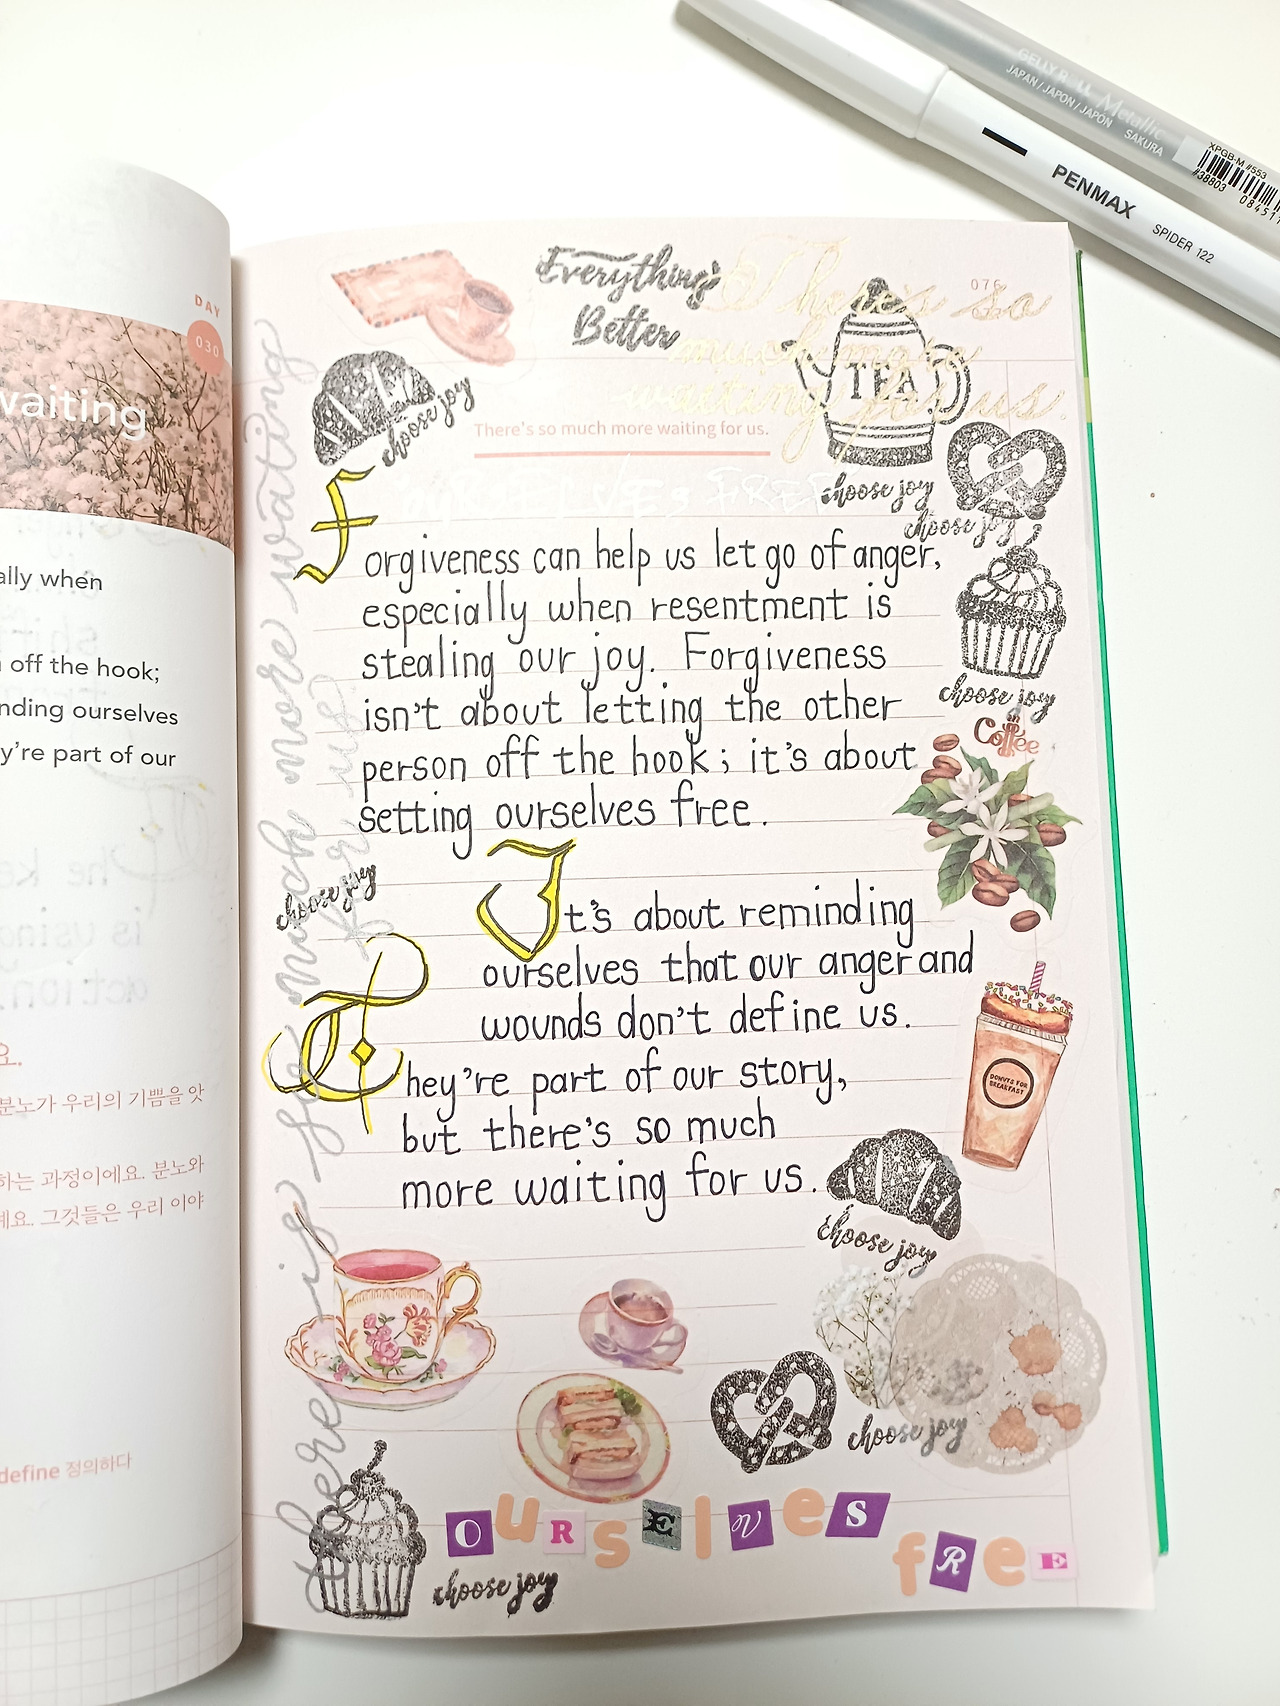 GELLY ROLL Metallic
JAPAN / JAPON / JAPÓN SAKURA
XPGB-M #553
#38803
PENMAX SPIDER 122
DAY
030
waiting
ally when
off the hook;
nding ourselves
y're part of our
요.
분노가 우리의 기쁨을 앗
하는 과정이에요. 분노와
예요. 그것들은 우리 이야
define 정의하다
076
Everything's
Better
There's so
much more
waiting for us.
TEA
choose joy
There's so much more waiting for us.
choose joy
choose joy
FREE
Forgiveness can help us let go of anger,
especially when resentment is
stealing our joy. Forgiveness
isn't about letting the other
person off the hook; it's about
setting ourselves free.
choose joy
Coffee
choose joy
It's about reminding
ourselves that our anger and
wounds don't define us.
They're part of our story,
but there's so much
more waiting for us.
DONUTS FOR
BREAKFAST
choose joy
choose joy
choose joy
OURSELVES
FREE
there is so much more waiting
for us